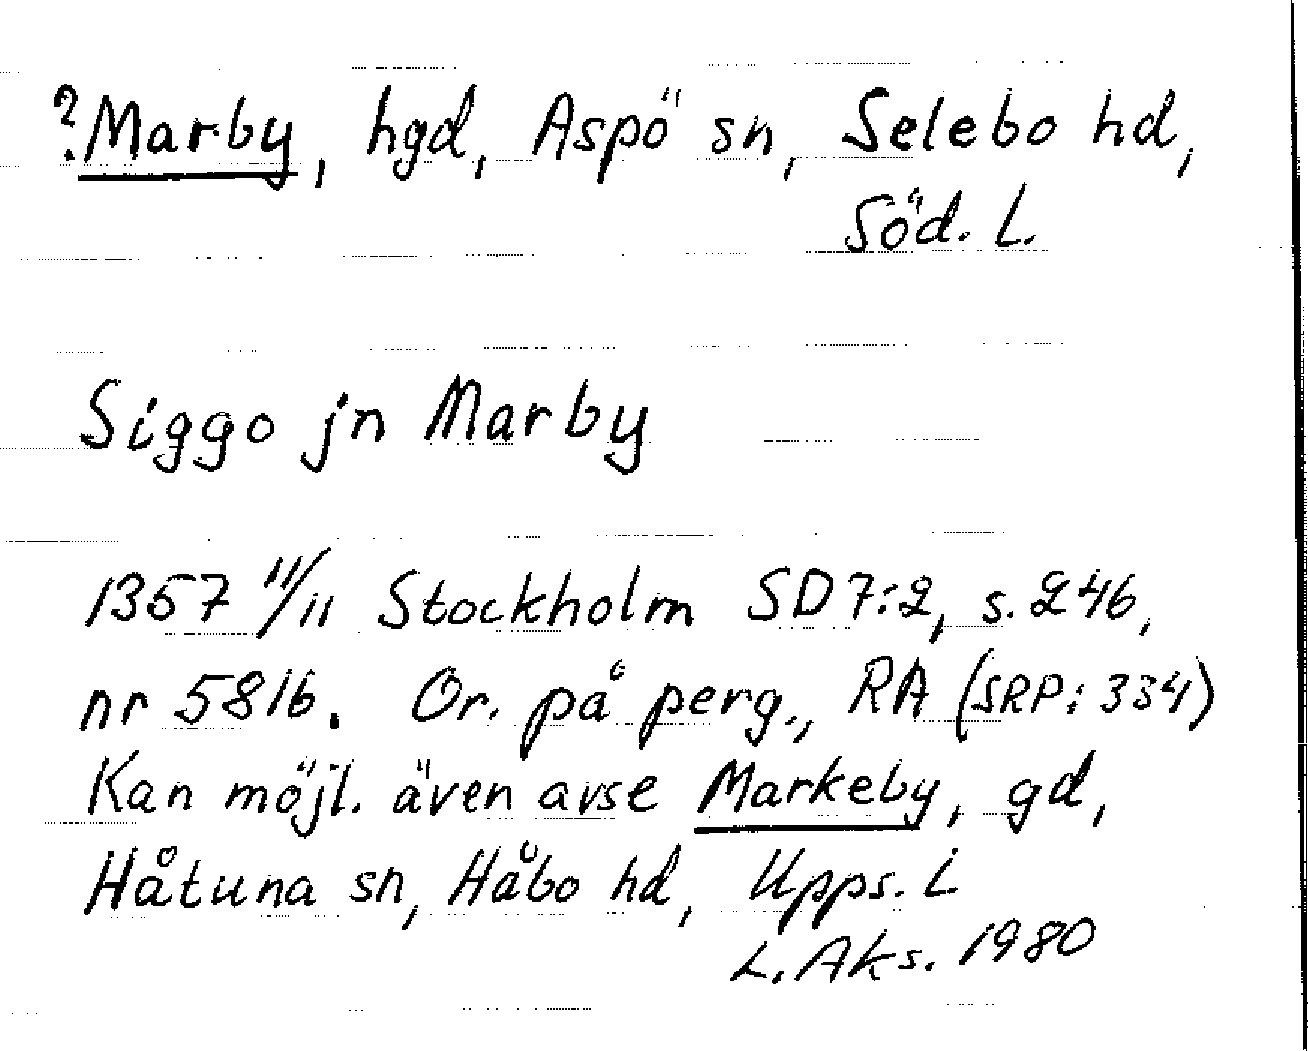 ?Marby, hgd, Aspö sn, Selebo hd,
Söd. L.
Siggo jn Marby
1357 11/11 Stockholm SD 7:2, s. 246,
nr 5816. Or. på perg., RA (SRP: 334)
Kan möjl. även avse Markeby, gd,
Håtuna sn, Håbo hd, Upps. L
L. Aks. 1980